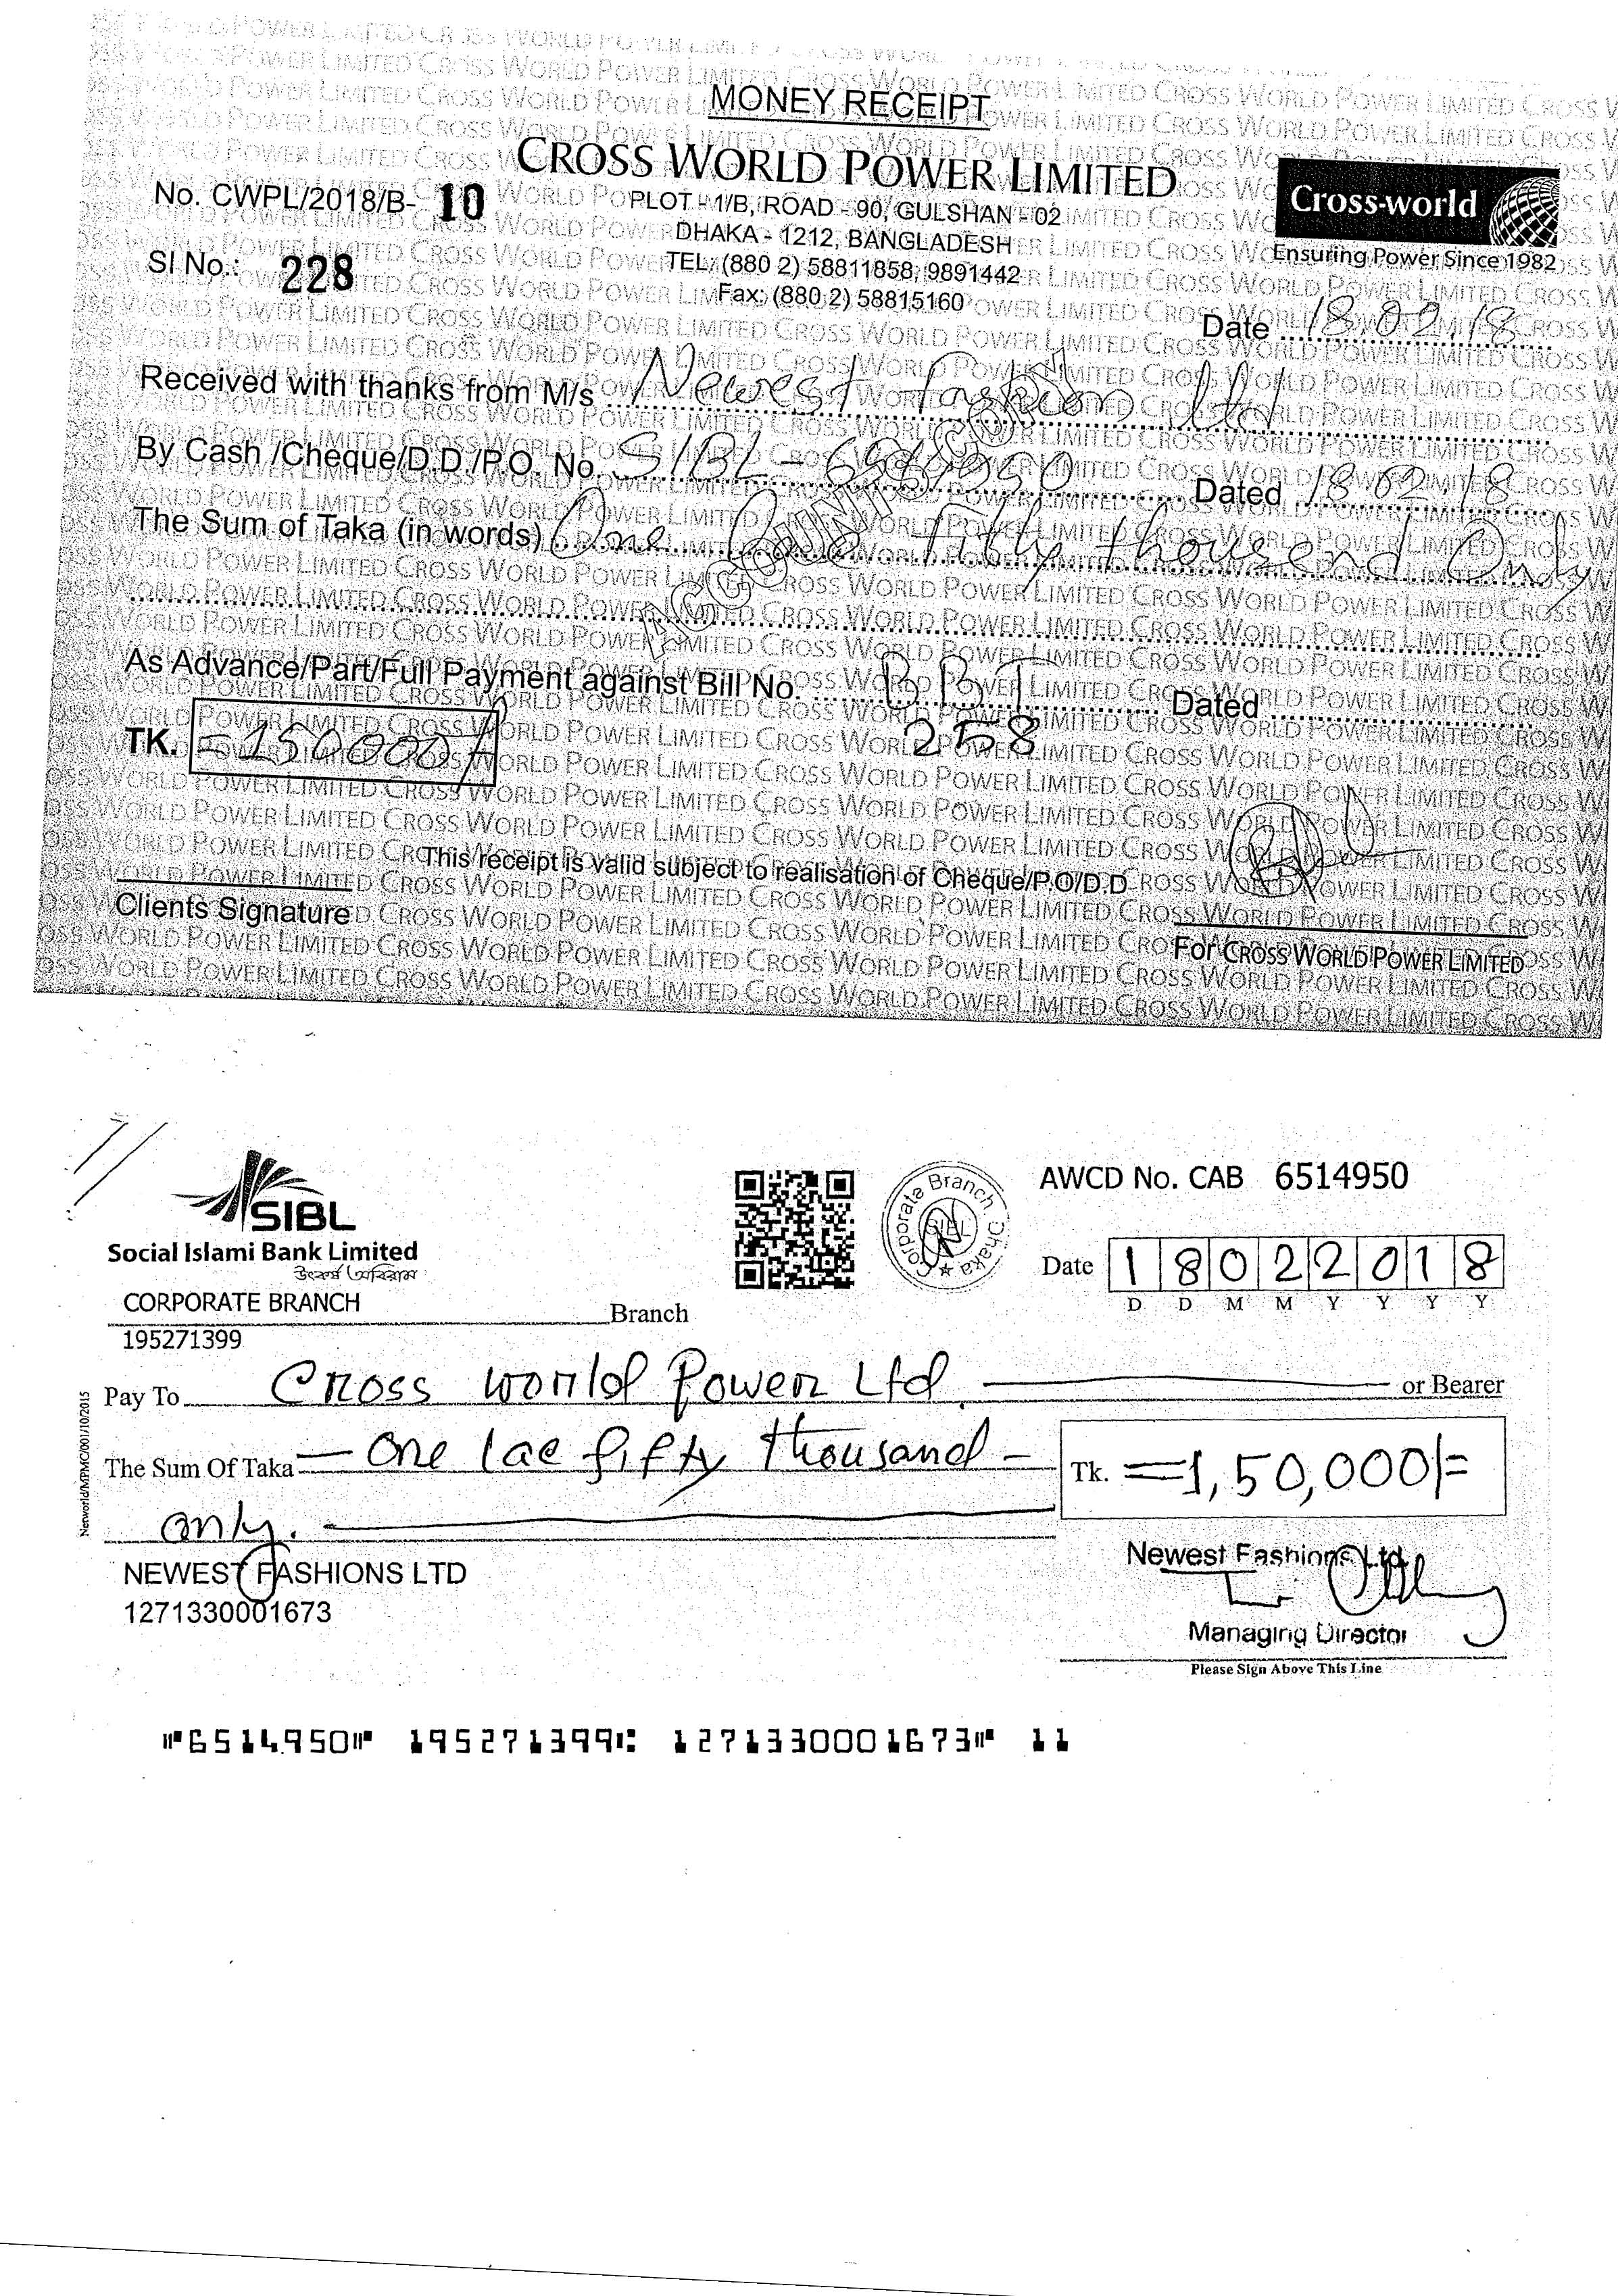 MONEY RECEIPT
CROSS WORLD POWER LIMITED
No. CWPL/2018/B- 10
PLOT - 1/B, ROAD - 90, GULSHAN - 02
Cross-world
DHAKA - 1212, BANGLADESH
Ensuring Power Since 1982
Sl No.: 228
TEL: (880 2) 58811858, 9891442
Fax: (880 2) 58815160
Date 18.02.18
Received with thanks from M/s Newest Fashion Ltd
By Cash /Cheque/D.D./P.O. No. SIBL - Dated 18.02.18
The Sum of Taka (in words) One Fifty thousand Only
As Advance/Part/Full Payment against Bill No. BBT Dated
TK. =150000/
258
This receipt is valid subject to realisation of Cheque/P.O/D.D
Clients Signature
For CROSS WORLD POWER LIMITED
SIBL
Social Islami Bank Limited
উৎকর্ষে অবিরাম
CORPORATE BRANCH Branch
195271399
Corporate Branch Dhaka
SIBL
AWCD No. CAB 6514950
Date 18022018
D D M M Y Y Y Y
Pay To Cross world Power Ltd. or Bearer
The Sum Of Taka - One lac fifty thousand -
Tk. =1,50,000/=
only.
Networld/MPMC/001/10/2015
NEWEST FASHIONS LTD
1271330001673
Newest Fashions Ltd
Managing Director
Please Sign Above This Line
⑈6514950⑈ 195271399⑆ 1271330001673⑈ 11